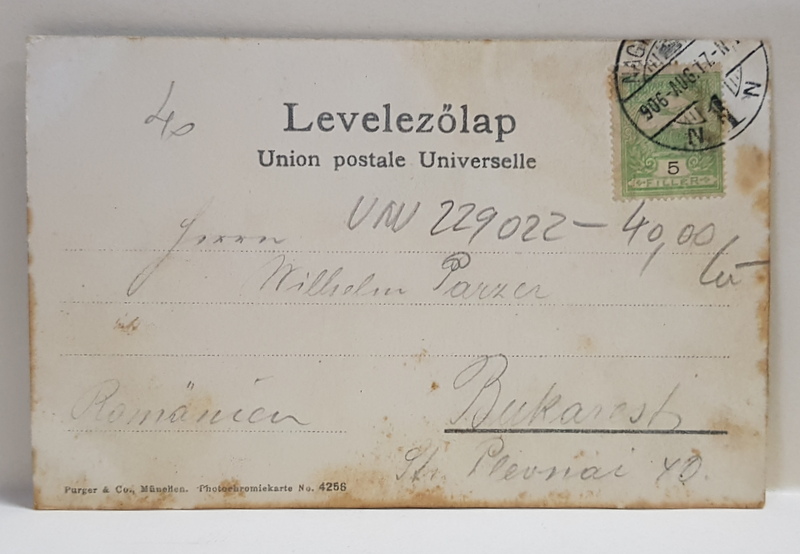 40
Levelezőlap
Union postale Universelle
NAG
906-AUG.17.-N
N 1
N
5
FILLER
VNV 229022 - 40,00
Herrn
Wilhelm Parzer
Romänien
Bukarest
Str. Plevnai 40.
Purger & Co., München. Photochromiekarte No. 4256